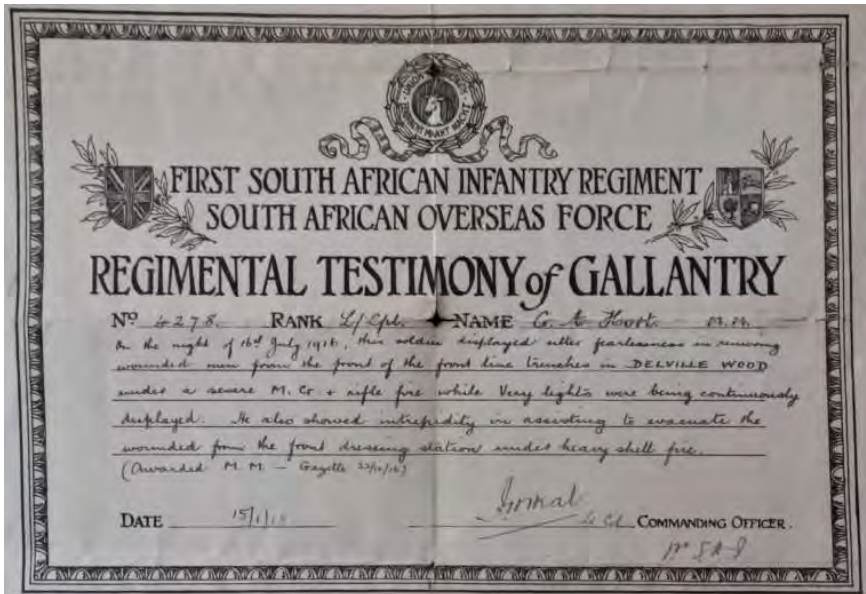 UNION
FIRST SOUTH AFRICAN INFANTRY REGIMENT
SOUTH AFRICAN OVERSEAS FORCE
REGIMENTAL TESTIMONY of GALLANTRY
No 4278. RANK L/Cpl. NAME M.M.
On the night of 16th July 1916, this soldier displayed utter fearlessness in removing
wounded men from the front of the front line trenches in DELVILLE WOOD
under a severe M. G. + rifle fire while Very lights were being continuously
displayed. He also showed intrepidity in assisting to evacuate the
wounded from the front dressing station under heavy shell fire.
(Awarded M. M. – Gazette
DATE 15/1/18 COMMANDING OFFICER.